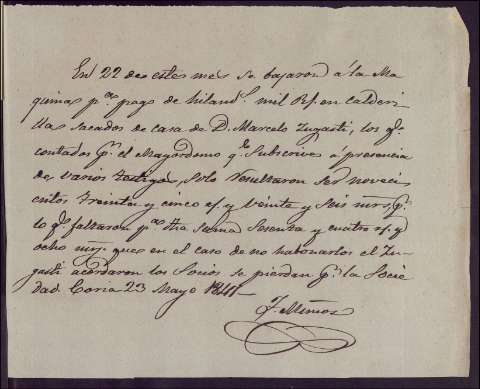 En 22 de este mes se bajaron á la Ma
quinas p.ª pago de hiland.s mil Rs. en calderi
llas sacados de casa de D. Marcelo Zugasti, los q.e
contados p.r el Mayordomo q.e Subscrive á presencia
de varios testigos, solo resultaron ser novecis
cientos treinta y cinco rs. y veinte y seis mrs. p.r
lo q.e faltaron p.ª dha suma sesenta y cuatro rs. y
ocho mrs. que en el caso de no habonarlos el Zu
gasti acordaron los Socios se pierdan p.r la Socie
dad. Coria 23 Mayo 1841